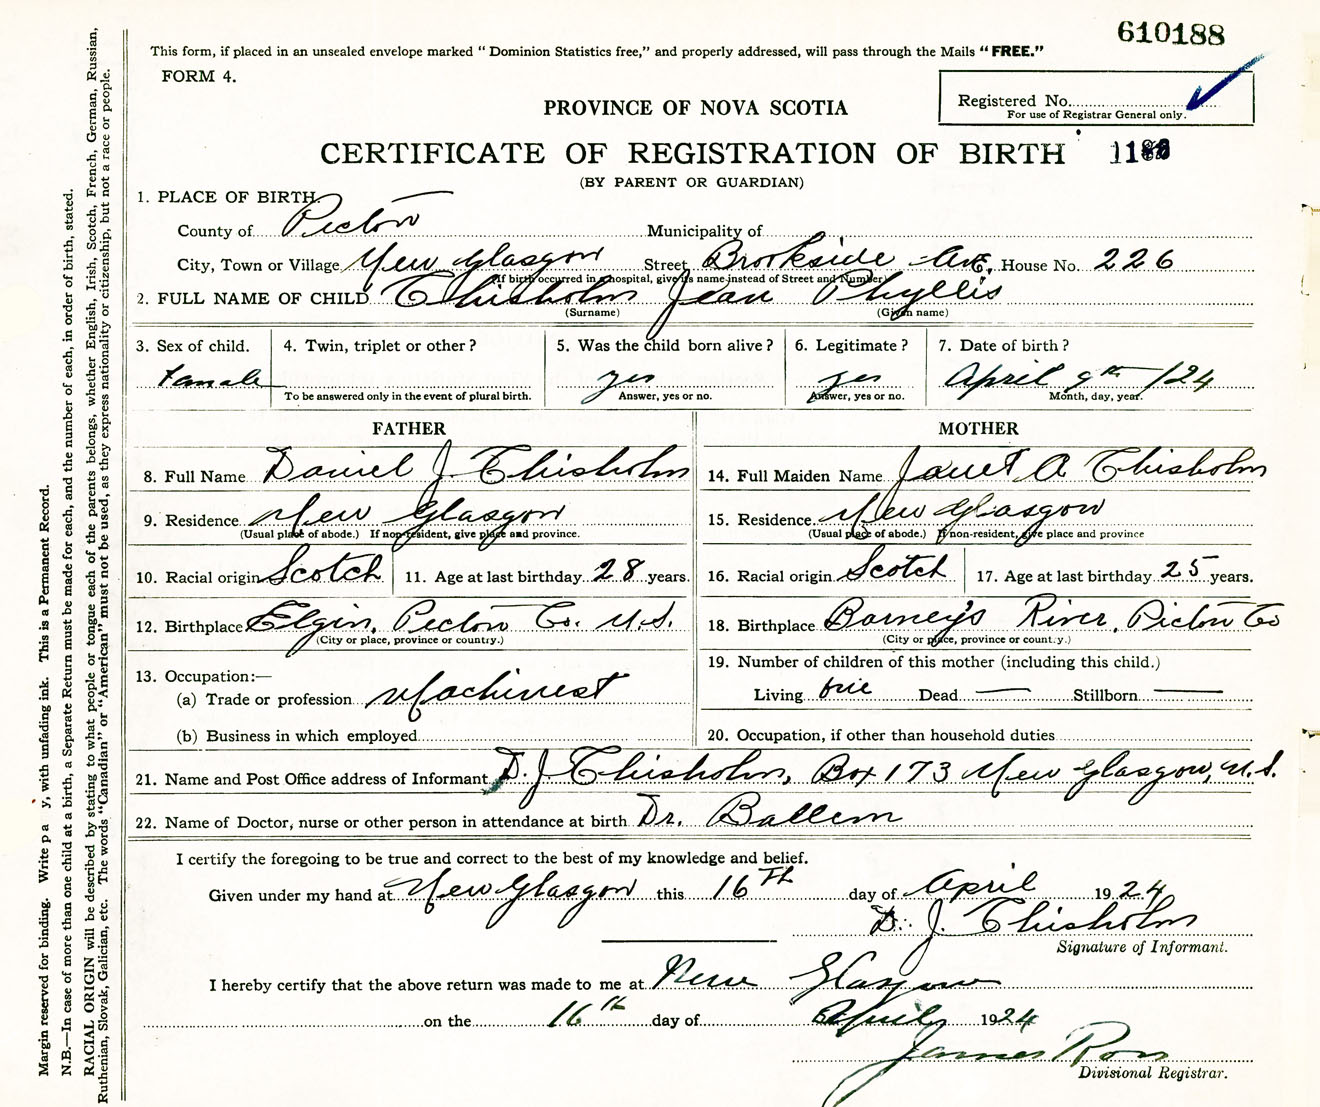 610188
This form, if placed in an unsealed envelope marked “ Dominion Statistics free,” and properly addressed, will pass through the Mails “ FREE.”
FORM 4.
Registered No.
For use of Registrar General only.
PROVINCE OF NOVA SCOTIA
CERTIFICATE OF REGISTRATION OF BIRTH
(BY PARENT OR GUARDIAN)
1. PLACE OF BIRTH.
County of Pictou Municipality of
City, Town or Village New Glasgow Street Brookside Ave. House No. 226
(If birth occurred in a hospital, give its name instead of Street and Number)
2. FULL NAME OF CHILD Chisholm Jean Phyllis
(Surname) (Given name)
3. Sex of child. 4. Twin, triplet or other ? 5. Was the child born alive ? 6. Legitimate ? 7. Date of birth ?
Female yes yes April 9th /24
To be answered only in the event of plural birth. Answer, yes or no. Answer, yes or no. Month, day, year.
FATHER MOTHER
8. Full Name Daniel J. Chisholm 14. Full Maiden Name Janet A Chisholm
9. Residence New Glasgow 15. Residence New Glasgow
(Usual place of abode.) If non-resident, give place and province. (Usual place of abode.) If non-resident, give place and province
10. Racial origin Scotch 11. Age at last birthday 28 years. 16. Racial origin Scotch 17. Age at last birthday 25 years.
12. Birthplace Elgin, Pictou Co. N.S. 18. Birthplace Barney's River, Pictou Co
(City or place, province or country.) (City or place, province or country.)
13. Occupation:— 19. Number of children of this mother (including this child.)
(a) Trade or profession Machinest Living one Dead — Stillborn —
(b) Business in which employed 20. Occupation, if other than household duties
21. Name and Post Office address of Informant D. J. Chisholm, Box 173 New Glasgow, N.S.
22. Name of Doctor, nurse or other person in attendance at birth Dr. Ballem
I certify the foregoing to be true and correct to the best of my knowledge and belief.
Given under my hand at New Glasgow this 16th day of April 1924
D. J. Chisholm
Signature of Informant.
I hereby certify that the above return was made to me at New Glasgow
on the 16th day of April 1924
James Ross
Divisional Registrar.
Margin reserved for binding. Write y, with unfading ink. This is a Permanent Record.
N.B.—In case of more than one child at a birth, a Separate Return must be made for each, and the number of each, in order of birth, stated.
RACIAL ORIGIN will be described by stating to what people or tongue each of the parents belongs, whether English, Irish, Scotch, French, German, Russian,
Ruthenian, Slovak, Galician, etc. The words “Canadian” or “American” must not be used, as they express nationality or citizenship, but not a race or people.